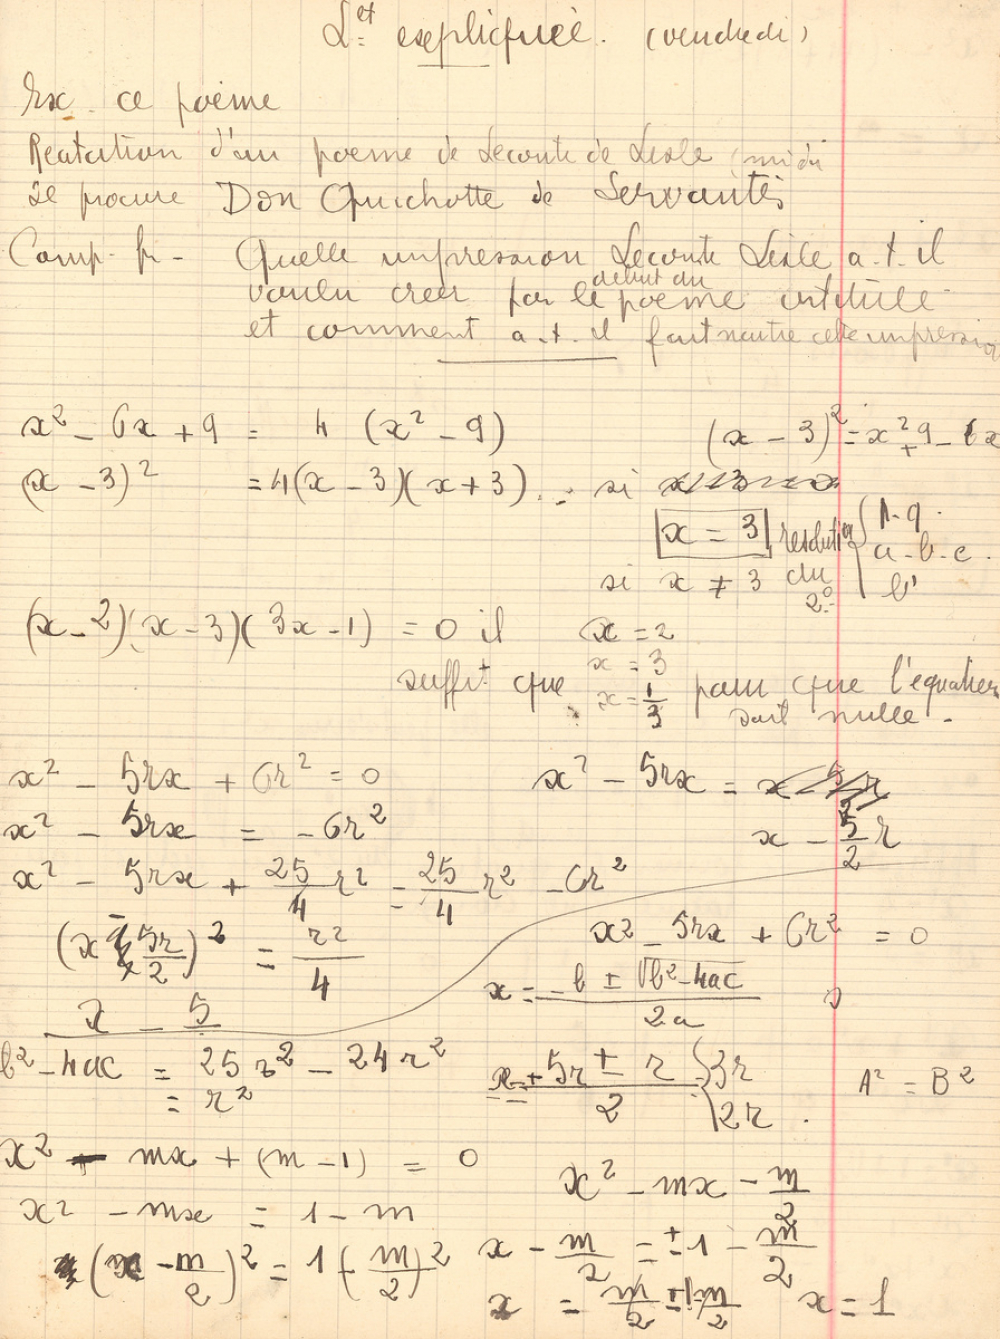 L.et expliquée. (vendredi)
Ex. ce poème
Recitation d'un poeme de Leconte de Lisle (midi
se procure Don Quichotte de Servantès
Comp. fr - Quelle impression Leconte Lisle a.t.il
voulu creer par le debut du poème intitulé
et comment a.t.il fait naitre cette impression
x² - 6x + 9 = 4 (x² - 9)
(x - 3)² = x² + 9 - 6x
(x - 3)² = 4(x - 3)(x + 3) . si
x = 3 resolution du 2° { p.q. a-b-c. b'
si x ≠ 3
(x - 2)(x - 3)(3x - 1) = 0 il suffit que
x = 2
x = 3
x = 1/3
pour que l'équation
soit nulle -
x² - 5rx + 6r² = 0
x² - 5rx =
x² - 5rx = - 6r²
x - 5/2 r
x² - 5rx + 25/4 r² = 25/4 r² - 6r²
(x - 5r/2)² = r²/4
x² - 5rx + 6r² = 0
x = -b ± √b² - 4ac / 2a
x - 5
b² - 4ac = 25r² - 24r²
= r²
x = + 5r ± r / 2 { 3r 2r .
A² = B²
x² - mx + (m - 1) = 0
x² - mx - m/2
x² - mx = 1 - m
(x - m/2)² = 1 (- m/2)²
x - m/2 = ± 1 - m/2
x = m/2 ± 1 - m/2
x = 1